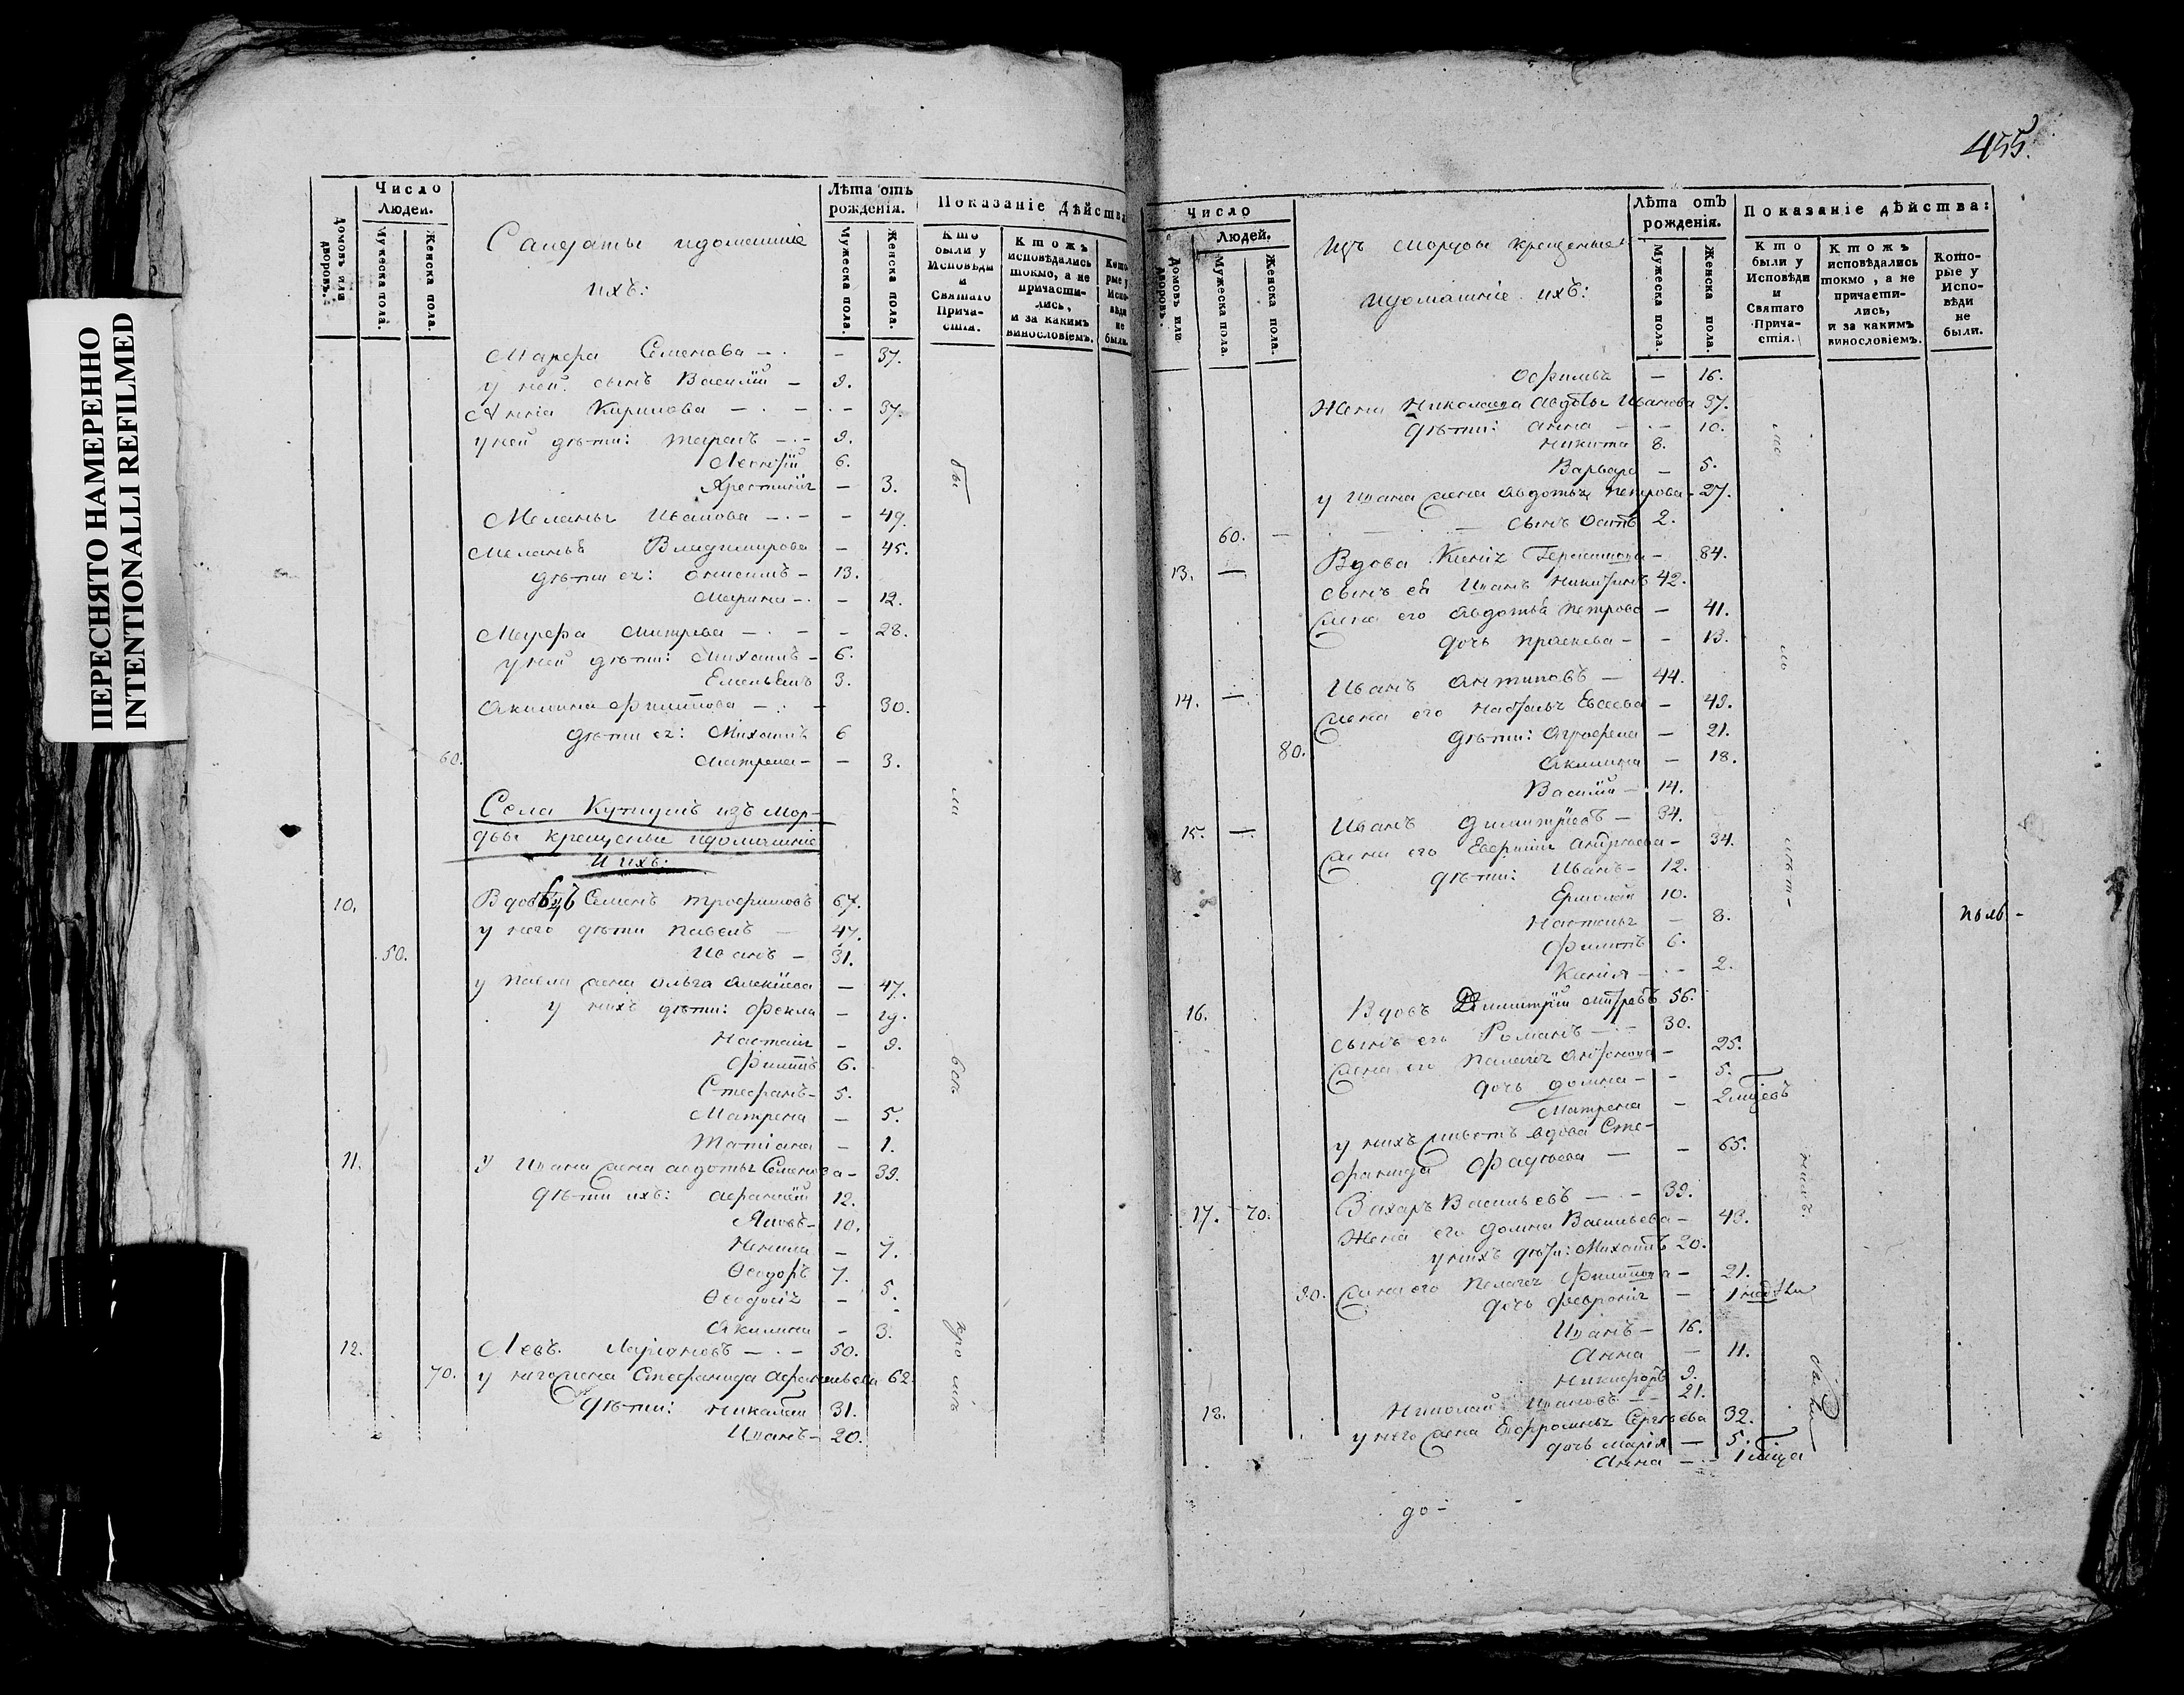 ПЕРЕСНЯТО НАМЕРЕННО
INTENTIONALLI REFILMED
Домовъ или дворовъ.
Число Людей.
Мужеска пола.
Женска пола.
Салдаты идомашніе
ихъ:
Лѣта отъ рожденія.
Мужеска пола.
Женска пола.
Показаніе Дѣйства
Кто были у Исповѣди и Святаго Прича-стія.
Ктожъ исповѣдались токмо, а не причасти-лись, и за какимъ винословіемъ.
Марфа Семенова — . — 37.
у ней сынъ Василій — 9.
Анна Кирилова — . — 37.
уней дѣти: Тарасъ — 9.
6.
Христинія — 3.
Меланья Иванова — 49.
Меланья Владимирова — 45.
дѣти ея: Онисимъ — 13.
Марина — 12.
Марфа Митрева — . — 28.
у ней дѣти: Михаилъ — 6.
Емельянъ 3.
Акилина Филипова — . — 30.
дѣти ея: Михаилъ 6
60. Матрена — 3.
Села из Мор-
двы крещеные идомашніе
ихъ:
10. Вдовъ Семенъ Трофимовъ 67.
у него дѣти Павелъ — 47.
50. Иванъ — 31.
у Павла жена Ольга Алексіева — 47.
у нихъ дѣти: Фекла — 19.
Настасія — 9.
Филипъ 6.
Стефанъ — 5.
Матрена — 5.
Татіана — 1.
11. У Ивана жена Авдотья Семенова — 39.
дѣти ихъ: Афанасій 12.
Яковъ — 10.
Ненила — 7.
Ѳеодоръ 7.
Ѳеодосія — 5.
Акилина — 3.
12. Левъ Ларіоновъ — . — 50.
70. у него жена Стефанида Афанасьева 62.
дѣти: Николай 31.
Иванъ — 20.
бы
ли
вси
кро мѣ
455.
Число Людей.
Домовъ или дворовъ.
Мужеска пола.
Женска пола.
Изъ Мордвы крещеные
идомашніе ихъ:
Лѣта отъ рожденія.
Мужеска пола.
Женска пола.
Показаніе дѣйства:
Кто были у Исповѣди и Святаго Прича-стія.
Ктожъ исповѣдались токмо, а не причасти-лись, и за какимъ винословіемъ.
Кото-рые у Испо-вѣди не были.
Офимья — 16.
Жена Николаева Авдотья Иванова 37.
дѣти: Анна — . — 10.
Никита 8.
Варвара — 5.
у Ивана жена Авдотья Петрова — 27.
60. — сынъ Осипъ 2.
13. — Вдова Ксенія — 84.
сынъ ея Иванъ Никитинъ 42.
жена его Авдотья Петрова — 41.
дочь Прасковья — 13.
14. — Иванъ Антиповъ — 44.
жена его Наталья Евсеева — 43.
дѣти: Агрофена — 21.
80. Акилина — 18.
Василій — 14.
15. — Иванъ Димитріевъ — 34.
жена его Евфимія Андреева — 34.
дѣти: Иванъ — 12.
Ермолай 10.
Настасья — 8.
Филипъ 6.
Ксенія — . — 2.
16. Вдовъ Димитрій Митревъ 56.
сынъ его Романъ — . — 30.
жена его Пелагея Антонова — 25.
дочь Домна — 5.
Матрена —
у нихъ живетъ вдова Сте-
фанида Фадѣева — 65.
17. 70. Захаръ Васильевъ — . — 39.
Жена его Домна Васильева — 43.
унихъ дѣти: Михаилъ 20.
90. жена его Пелагея Филипова — 21.
дочь Феврония —
Иванъ — 16.
Анна — 11.
Никифоръ 9.
18. Николай Ивановъ — 21.
у него жена Ефросинья Сергѣева 32.
дочь Марія — 5.
Анна —
до —